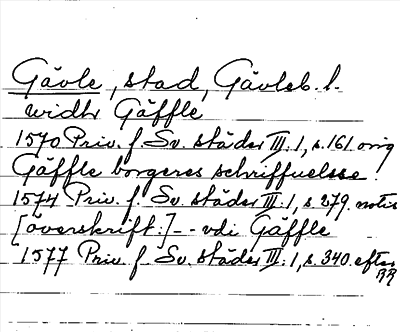 Gävle, stad, Gävleb. l.
widh Gäffle
1570 Priv. f. Sv. städer III:1, s. 161 orig
Gäffle borgeres schriffuelsse.
1574 Priv. f. Sv. städer III:1, s. 279. notis
[överskrift:] - - vdi Gäffle
1577 Priv. f. Sv. städer III:1, s. 340. efter
RR